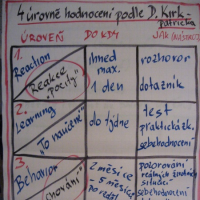 4 úrovně hodnocení podle D. Kirk-
patricka
ÚROVEŇ DO KDY JAK (NÁSTROJ)
1.
Reaction
"Reakce
pocity"
ihned
max.
1 den
rozhovor
dotazník
2.
Learning
"To naučené"
do týdne
test
praktická zk.
sebehodnocení
3.
Behavior
"chování"
2 měsíce
- 5 měsíce
po
pozorování
reálných
situací
sebehodnocení